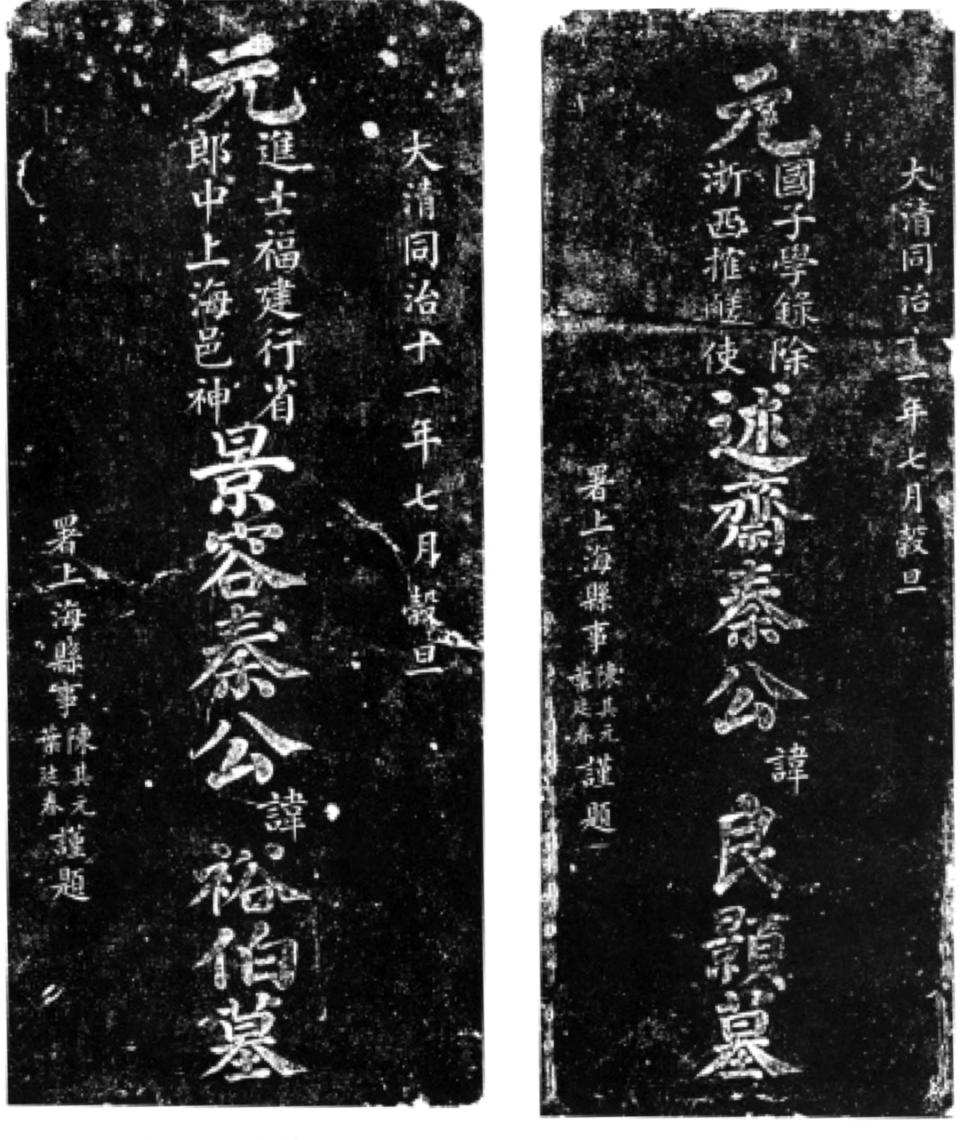 大清同治十一年七月穀旦
元國子學錄除浙西搉鹺使述齋秦公諱良顥墓
署上海縣事陳其元葉廷春謹題
大清同治十一年七月穀旦
元進士福建行省郎中上海邑神景容秦公諱裕伯墓
署上海縣事陳其元葉廷春謹題